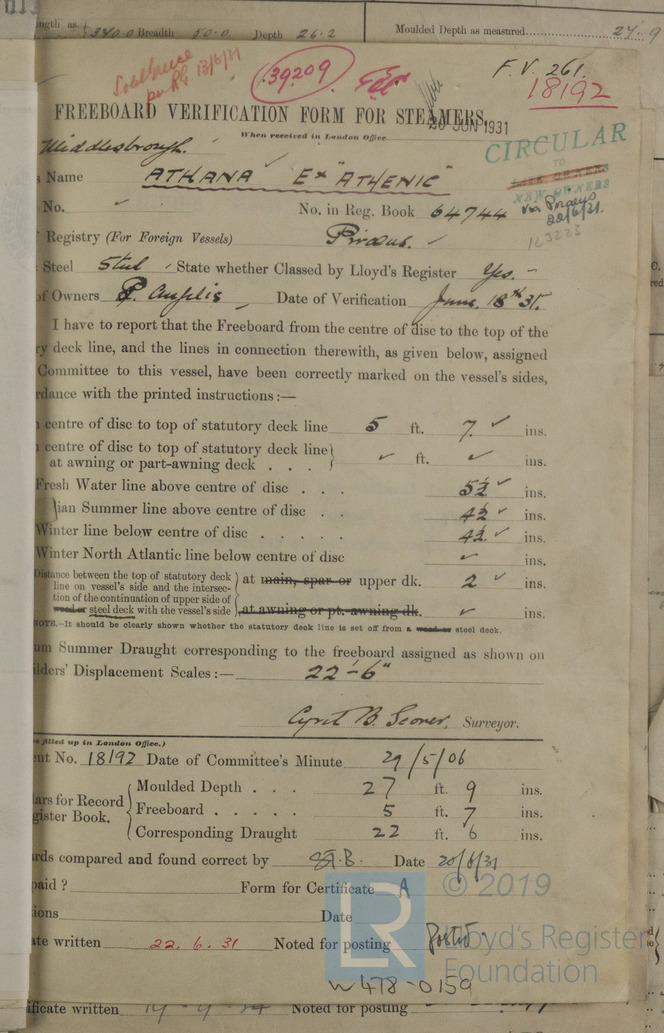 ngth as 340·0 Breadth 50·0 Depth 26·2 Moulded Depth as measured 27·9
13/6/31
39209
F. V. 261.
18192
FREEBOARD VERIFICATION FORM FOR STEAMERS.
20 JUN 1931
When received in London Office
CIRCULAR
TO
LATE OWNERS
NEW OWNERS
Middlesbrough.
Name ATHANA Ex "ATHENIC"
No. No. in Reg. Book 64744
22/6/31.
Registry (For Foreign Vessels) Piraeus.
Steel Steel State whether Classed by Lloyd's Register Yes.
of Owners Date of Verification June 18th 31.
I have to report that the Freeboard from the centre of disc to the top of the
ry deck line, and the lines in connection therewith, as given below, assigned
Committee to this vessel, have been correctly marked on the vessel's sides,
rdance with the printed instructions:—
centre of disc to top of statutory deck line 5 ft. 7 ins.
centre of disc to top of statutory deck line
at awning or part-awning deck . . . ft. ins.
Fresh Water line above centre of disc . . . 5½ ins.
ian Summer line above centre of disc . . 4½ ins.
Winter line below centre of disc . . . . . 4½ ins.
Winter North Atlantic line below centre of disc ins.
Distance between the top of statutory deck
line on vessel's side and the intersec-
tion of the continuation of upper side of
wood or steel deck with the vessel's side
at main, spar or upper dk. 2 ins.
at awning or pt. awning dk. ins.
NOTE.—It should be clearly shown whether the statutory deck line is set off from a wood or steel deck.
um Summer Draught corresponding to the freeboard assigned as shown on
ilders' Displacement Scales:— 22'-6"
Cyril B. Scorer, Surveyor.
e filled up in London Office.)
nt No. 18192 Date of Committee's Minute 29/5/06
ars for Record
gister Book.
Moulded Depth . . . 27 ft. 9 ins.
Freeboard . . . . . 5 ft. 7 ins.
Corresponding Draught 22 ft. 6 ins.
rds compared and found correct by Date 20/6/31
paid ? Form for Certificate A
ions Date
ate written 22. 6. 31 Noted for posting Posted
LR
© 2019
Lloyd's Register
Foundation
W478-0159
ificate written Noted for posting